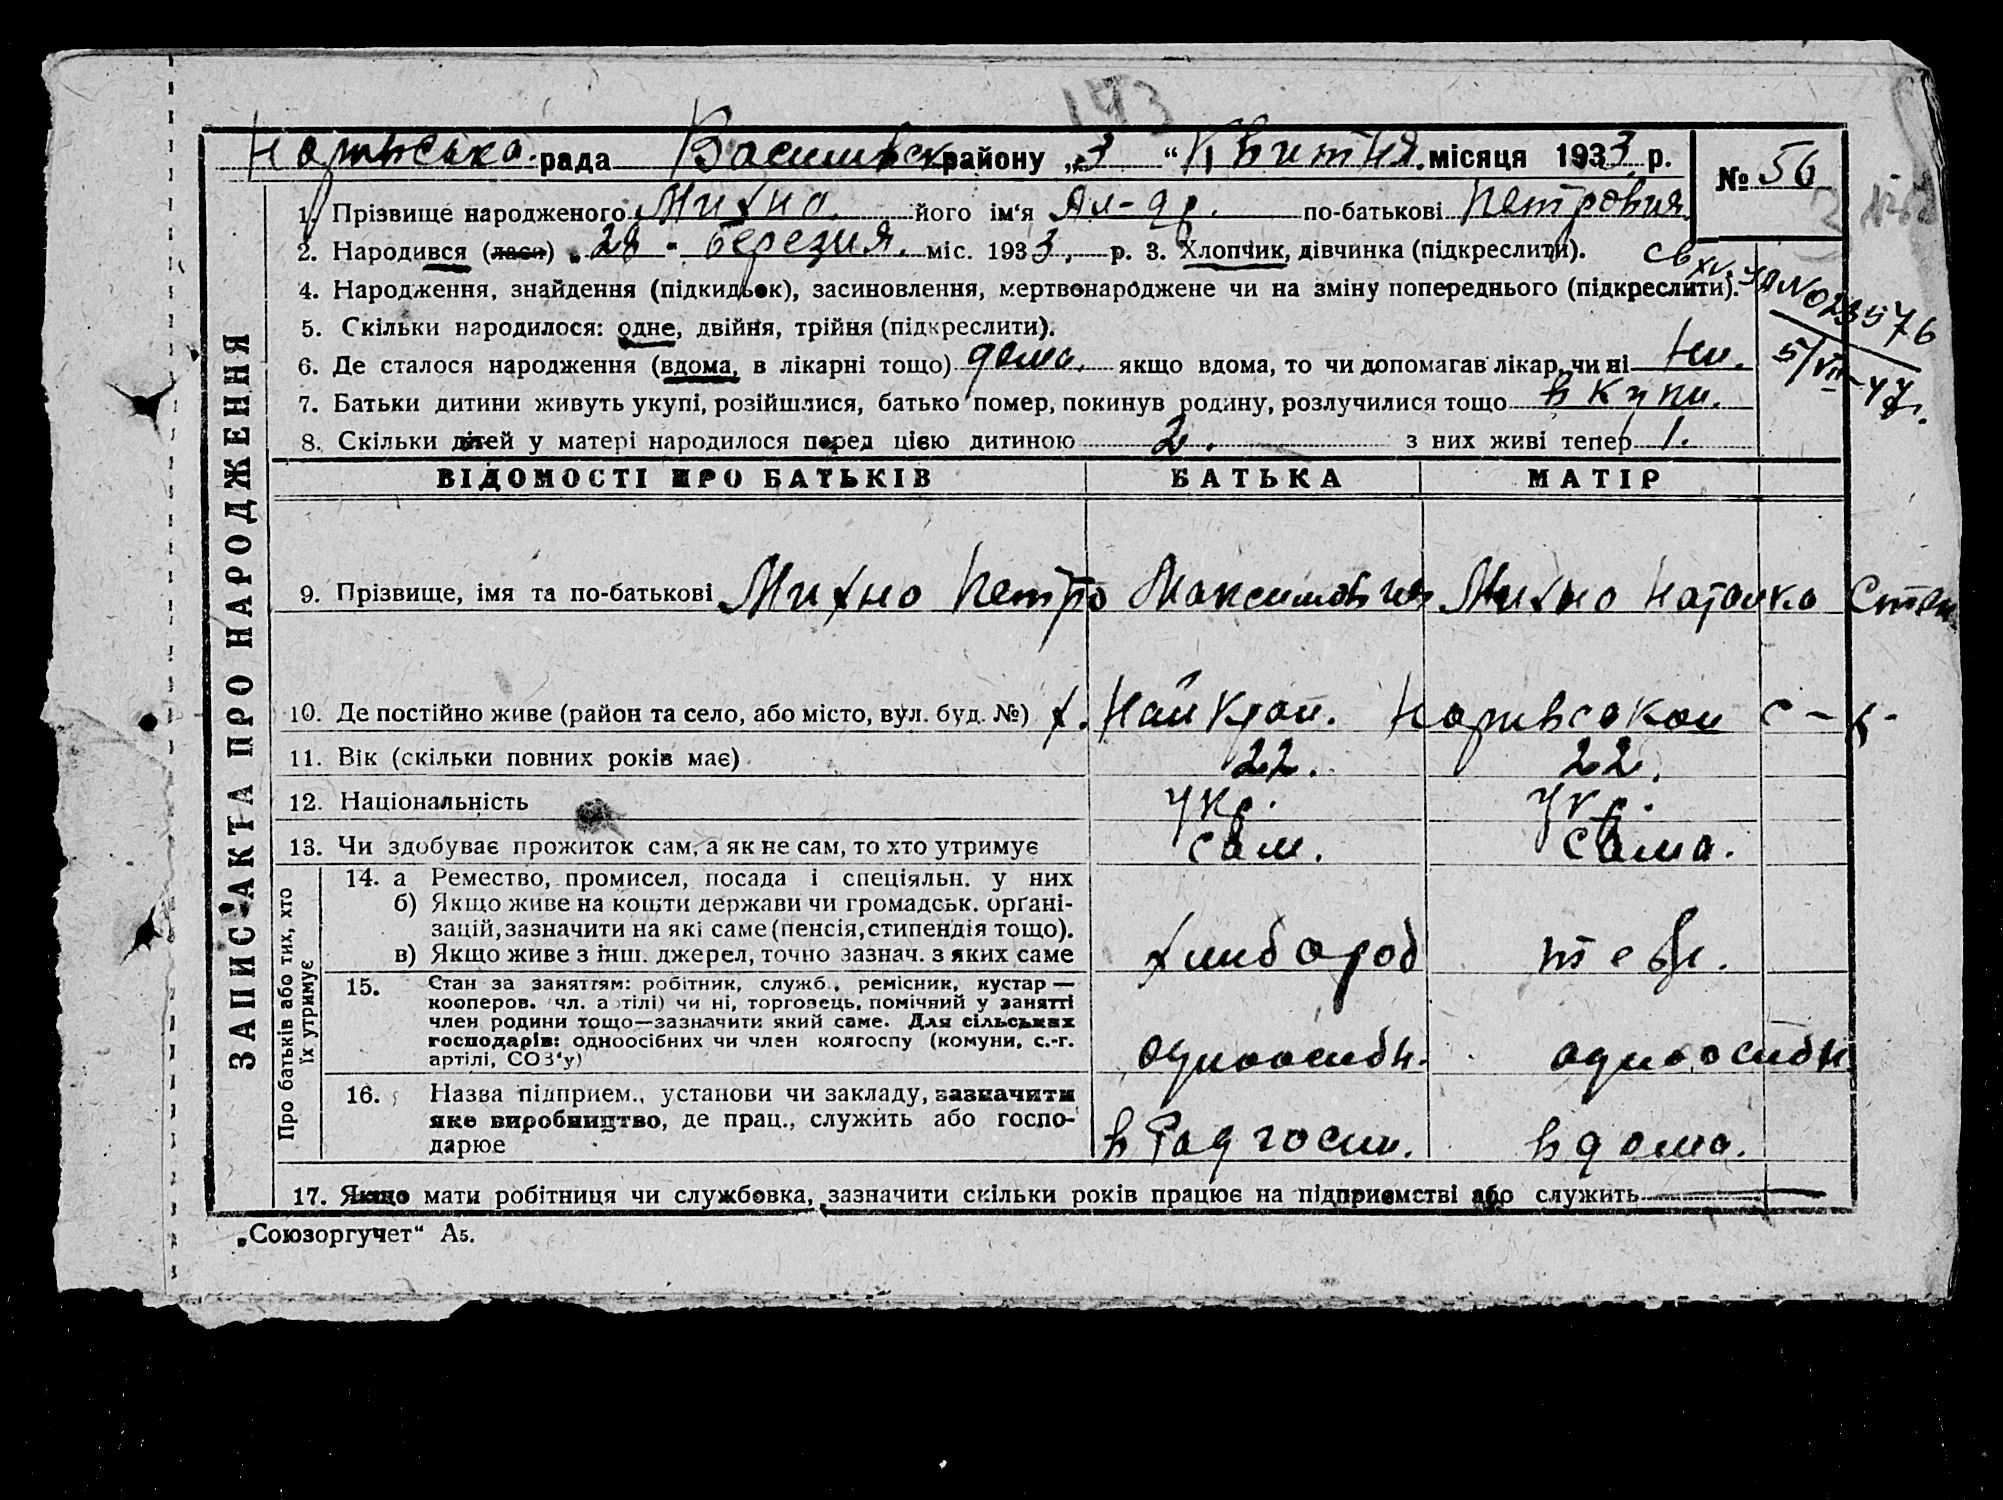 173
рада Василівськ. району „3“ Квитня. місяця 1933 р.
№ 56
1. Прізвище народженого Михно. його ім‘я Ал-др. по-батькові Петровия
2. Народився (лася) „28 - березия. міс. 1933, р. 3. Хлопчик, дівчинка (підкреслити).
4. Народження, знайдення (підкидьок), засиновлення, мертвонароджене чи на зміну попереднього (підкреслити).
5. Скільки народилося: одне, двійня, трійня (підкреслити).
6. Де сталося народження (вдома, в лікарні тощо) дома. якщо вдома, то чи допомагав лікар, чи ні Ни.
7. Батьки дитини живуть укупі, розійшлися, батько помер, покинув родину, розлучилися тощо в купи.
8. Скільки дітей у матері народилося перед цією дитиною 2. з них живі тепер 1.
5/VII-47г.
ВІДОМОСТІ ПРО БАТЬКІВ БАТЬКА МАТІР
9. Прізвище, імя та по-батькові Михно Петро Максимович Михно Наталка Степ
10. Де постійно живе (район та село, або місто, вул. буд. №) х. с-р.
11. Вік (скільки повних років має) 22. 22.
12. Національність Укр. Укр.
13. Чи здобуває прожиток сам, а як не сам, то хто утримує сам. сама.
14. а Ремество, промисел, посада і спеціяльн. у них
б) Якщо живе на кошти держави чи громадськ. органі-
зацій, зазначити на які саме (пенсія, стипендія тощо).
в) Якщо живе з інш. джерел, точно зазнач. з яких саме хлибороб теж.
15. Стан за заняттям: робітник, служб., ремісник, кустар —
кооперов. чл. артілі) чи ні, торговець, помічний у занятті
член родини тощо—зазначити який саме. Для сільських
господарів: одноосібних чи член колгоспу (комуни, с.-г.
артілі, СОЗ‘у) одноосибн. одноосибн.
16. Назва підприєм., установи чи закладу, зазначити
яке виробництво, де прац., служить або госпо-
дарює в Радгосп. вдома.
17. Якщо мати робітниця чи службовка, зазначити скільки років працює на підприємстві або служить
ЗАПИС АКТА ПРО НАРОДЖЕННЯ
Про батьків або тих, хто
їх утримує
„Союзоргучет“ А5.